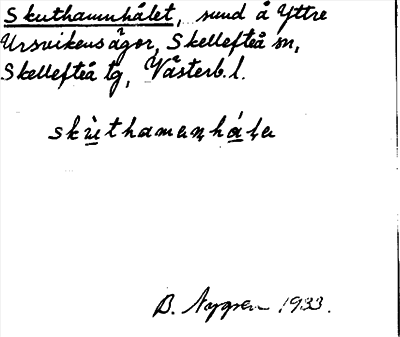 Skuthamnhålet, sund å Yttre
Ursvikens ägor, Skellefteå sn,
Skellefteå tg, Västerb. l.
skùthamanhála
B. Nygren 1933.